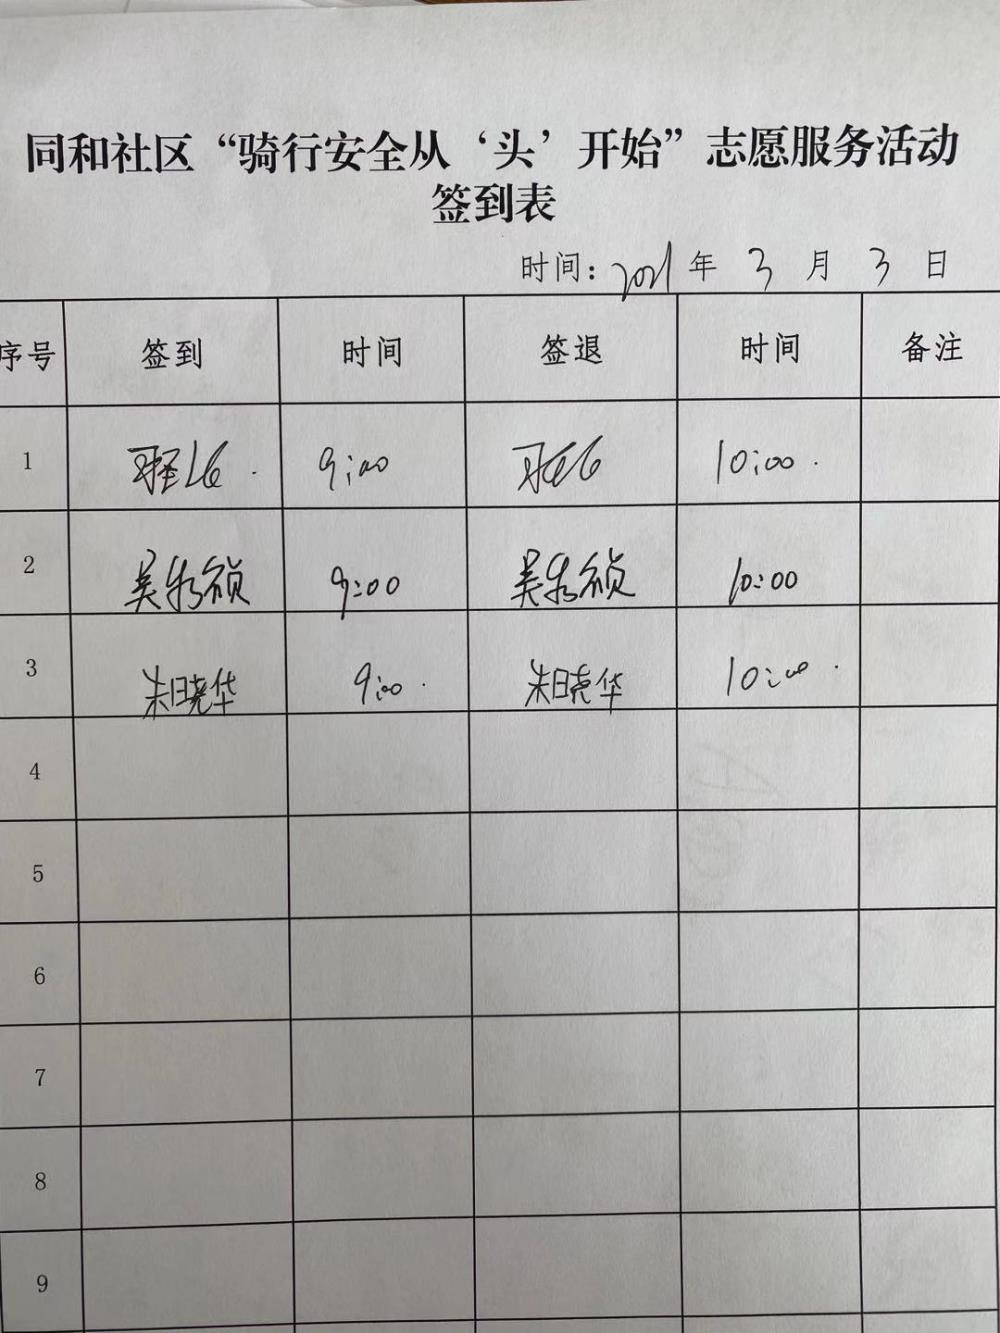 同和社区“骑行安全从‘头’开始”志愿服务活动
签到表
时间：2021年 3 月 3 日
序号 签到 时间 签退 时间 备注
1 9:00 10:00
2 吴 祯 9:00 吴 祯 10:00
3 朱晓华 9:00 朱晓华 10:00
4
5
6
7
8
9